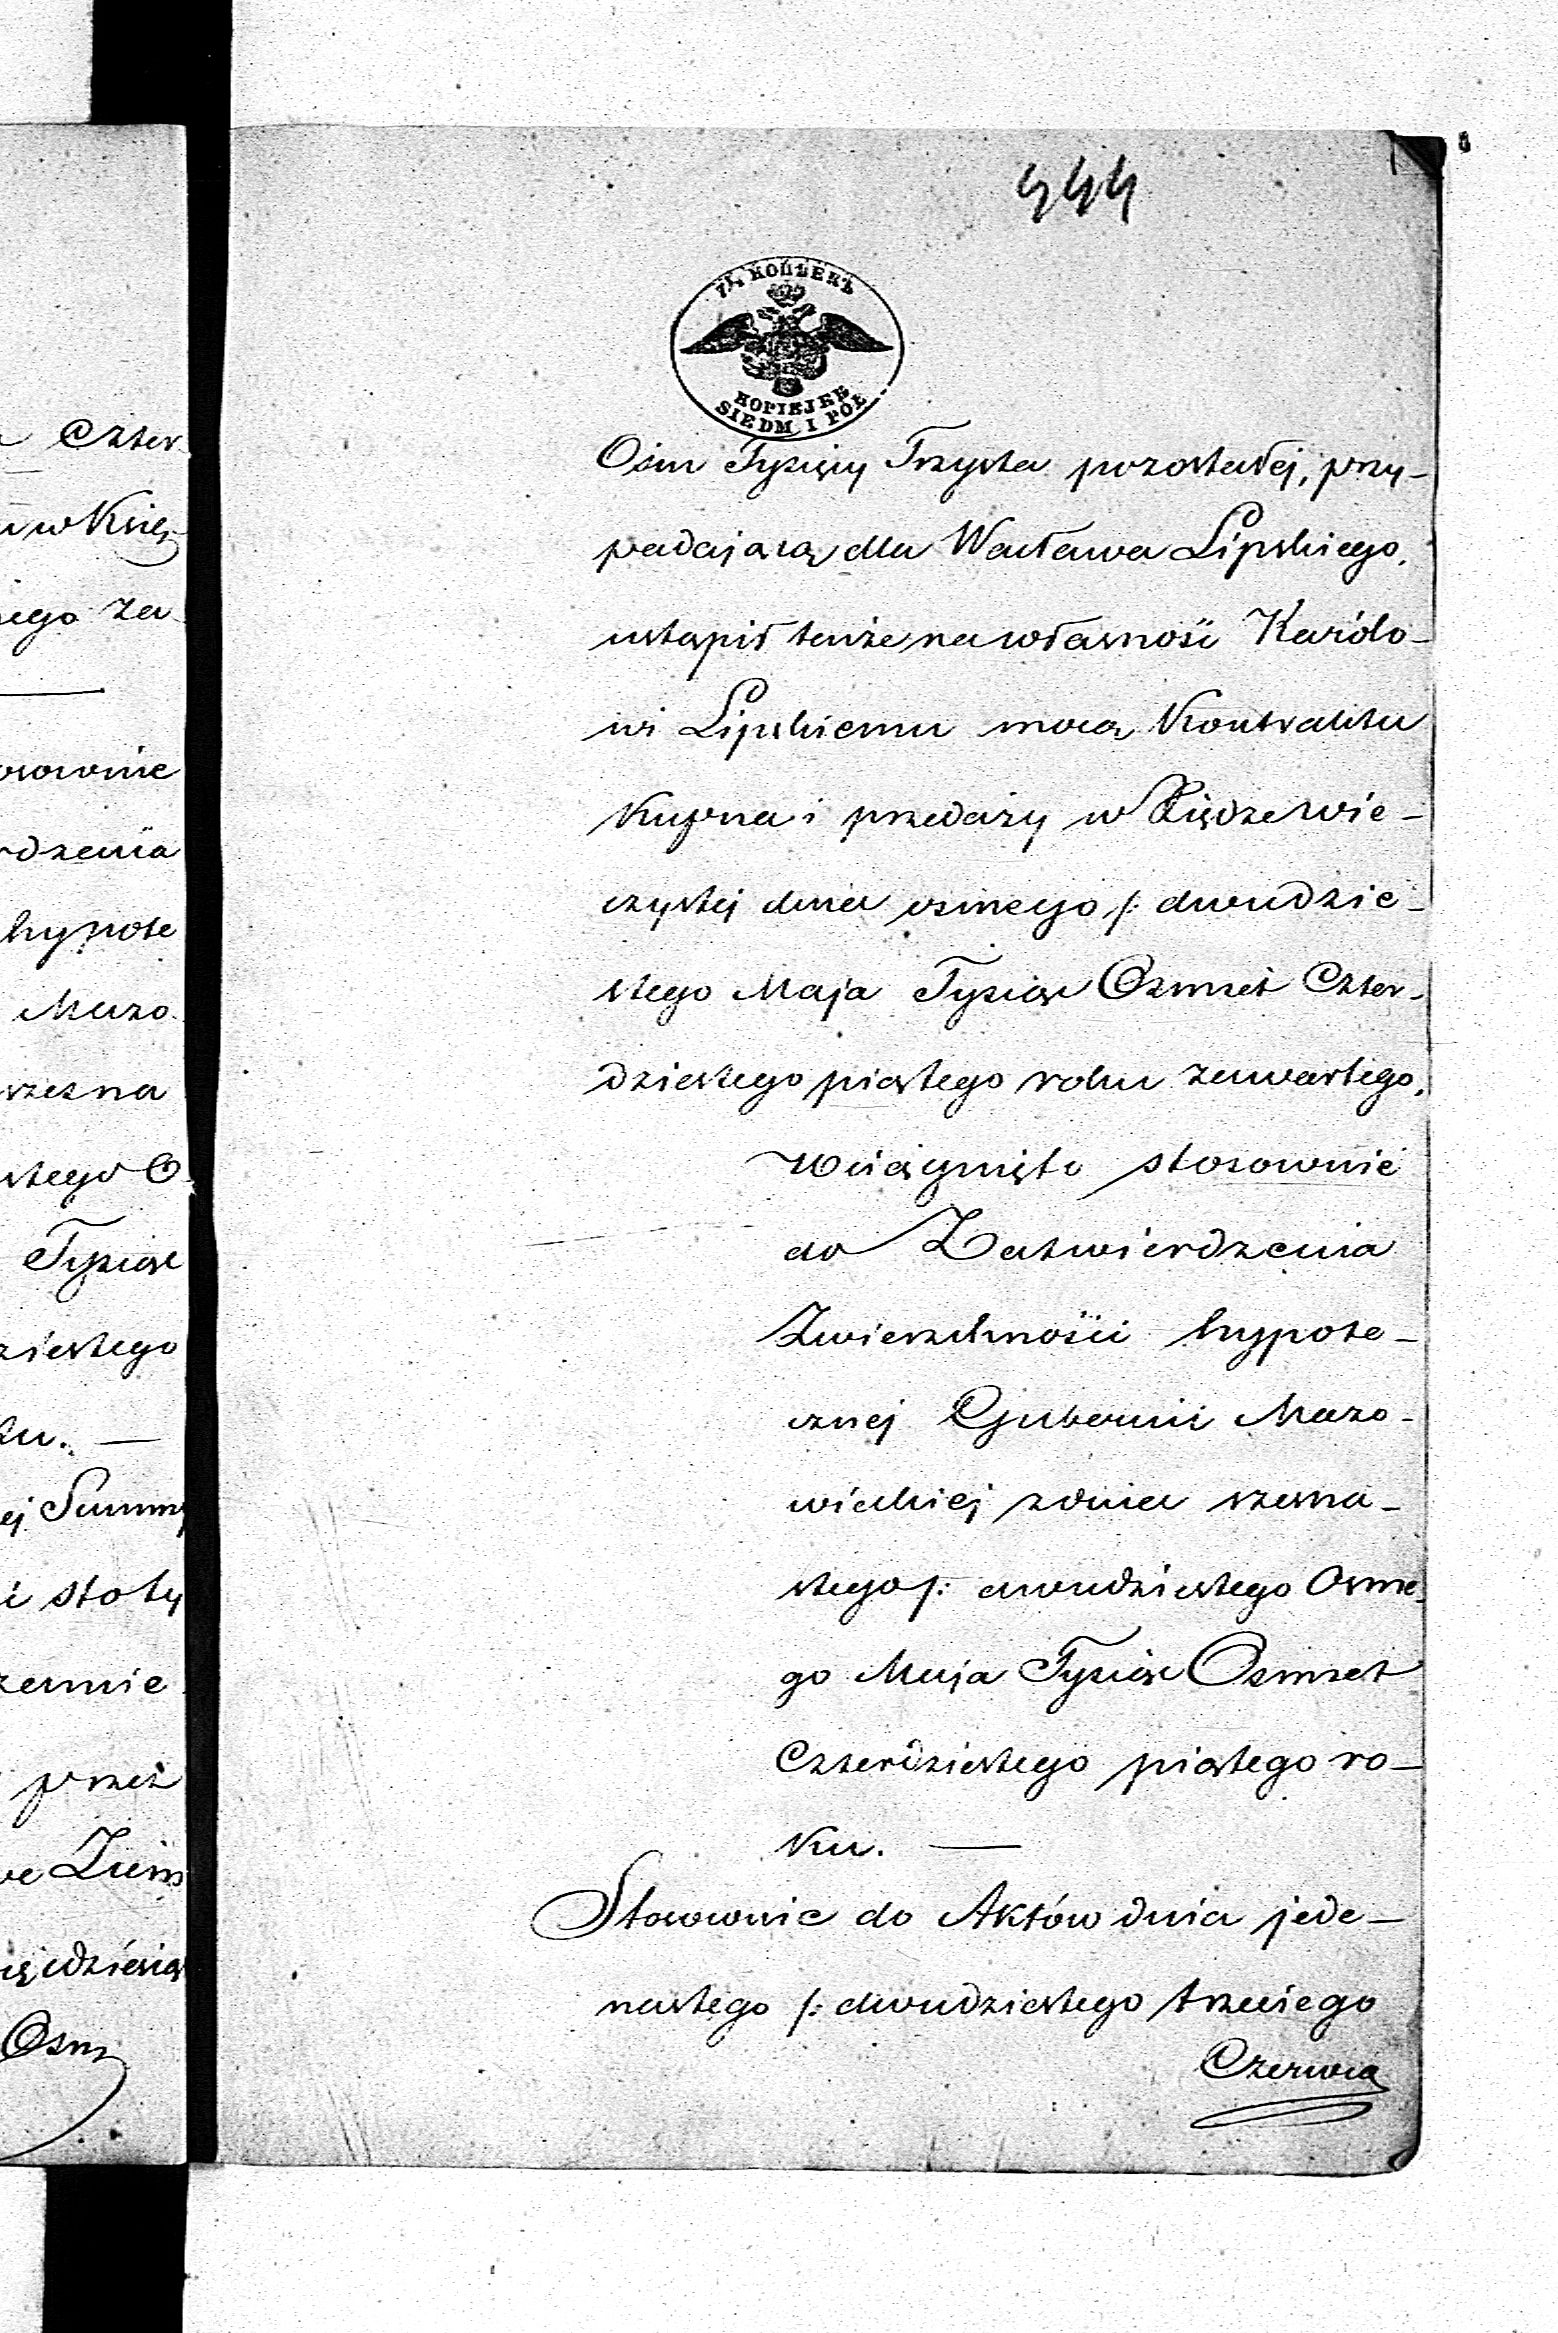 444
7½ КОПѢЕКЪ
KOPIEJEK
SIEDM I PÓŁ
Ośm Tysięcy Trzysta pozostałej, przy-
padającą dla Wacława Lipskiego,
ustąpił tenże na własność Karólo-
wi Lipskiemu mocą Kontraktu
Kupna i przedaży w Księdze wie-
czystej dnia ósmego /: dwudzie-
stego Maja Tysiąc Ośmset Czter-
dziestego piątego roku zawartego.
Wciągnięto stosownie
do Zatwierdzenia
Zwierzchności hypote-
cznej Gubernii Mazo-
wieckiej z dnia szesna-
stego /: dwudziestego Osme-
go Maja Tysiąc Ośmset
Czterdziestego piątego ro-
ku. —
Stosownie do Aktów dnia jede-
nastego /: dwudziestego trzeciego
Czerwca
Czter
w Księ
iego za
osownie
rdzenia
hypote
Mazo
szesna
stego O
Tysiąc
ziestego
ku. —
ej Summy
i stoty
zemie
przez
Ziems
dziesią
Osm